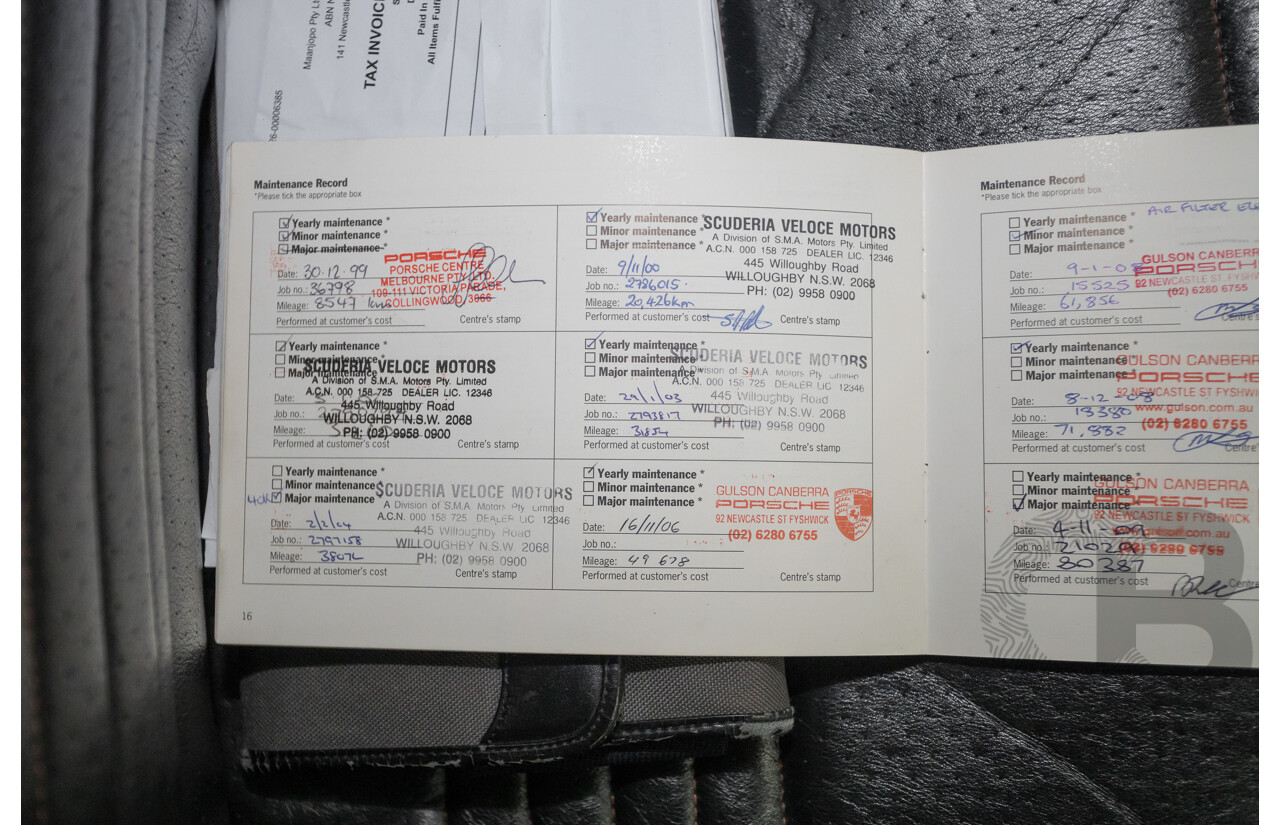 Maanjopo Pty L
ABN N
141 Newcastle
TAX INVOIC
Paid In
All Items Fulf
76-00006385
Maintenance Record
*Please tick the appropriate box
Yearly maintenance *
Minor maintenance *
Major maintenance *
Date: 30.12.99
Job no.: 36798
Mileage: 8547 kms
Performed at customer's cost
Centre's stamp
PORSCHE
PORSCHE CENTRE
MELBOURNE PTY. LTD.
109-111 VICTORIA PARADE,
COLLINGWOOD, 3066
Yearly maintenance *
Minor maintenance *
Major maintenance *
Date: 9/11/00
Job no.: 2786015
Mileage: 20,426km
Performed at customer's cost
Centre's stamp
SCUDERIA VELOCE MOTORS
A Division of S.M.A. Motors Pty. Limited
A.C.N. 000 158 725 DEALER LIC 12346
445 Willoughby Road
WILLOUGHBY N.S.W. 2068
PH: (02) 9958 0900
Yearly maintenance *
Minor maintenance *
Major maintenance *
Date:
Job no.:
Mileage:
Performed at customer's cost
Centre's stamp
SCUDERIA VELOCE MOTORS
A Division of S.M.A. Motors Pty. Limited
A.C.N. 000 158 725 DEALER LIC. 12346
445 Willoughby Road
WILLOUGHBY N.S.W. 2068
PH: (02) 9958 0900
Yearly maintenance *
Minor maintenance *
Major maintenance *
Date: 29/1/03
Job no.: 2793817
Mileage: 31854
Performed at customer's cost
Centre's stamp
SCUDERIA VELOCE MOTORS
A Division of S.M.A. Motors Pty. Limited
A.C.N. 000 158 725 DEALER LIC 12346
445 Willoughby Road
WILLOUGHBY N.S.W. 2068
PH: (02) 9958 0900
Yearly maintenance *
Minor maintenance *
40K Major maintenance *
Date: 2/2/04
Job no.: 2797158
Mileage: 38072
Performed at customer's cost
Centre's stamp
SCUDERIA VELOCE MOTORS
A Division of S.M.A. Motors Pty. Limited
A.C.N. 000 158 725 DEALER LIC 12346
445 Willoughby Road
WILLOUGHBY N.S.W. 2068
PH: (02) 9958 0900
Yearly maintenance *
Minor maintenance *
Major maintenance *
Date: 16/11/06
Job no.:
Mileage: 49 678
Performed at customer's cost
Centre's stamp
GULSON CANBERRA
PORSCHE
92 NEWCASTLE ST FYSHWICK
(02) 6280 6755
16
Maintenance Record
*Please tick the appropriate box
AIR FILTER ELE
Yearly maintenance *
Minor maintenance *
Major maintenance *
Date: 9-1-08
Job no.: 15525
Mileage: 61,856
Performed at customer's cost
Centre's
GULSON CANBERR
PORSCH
92 NEWCASTLE ST FYSHW
(02) 6280 6755
Yearly maintenance *
Minor maintenance *
Major maintenance *
Date: 8-12-08
Job no.: 18380
Mileage: 71,882
Performed at customer's cost
Centre's
GULSON CANBERR
PORSCHE
92 NEWCASTLE ST FYSHWI
www.gulson.com.au
(02) 6280 6755
Yearly maintenance *
Minor maintenance *
Major maintenance *
Date: 4-11-09
Job no.:
Mileage: 80387
Performed at customer's cost
Centre
GULSON CANBERRA
PORSCHE
92 NEWCASTLE ST FYSHWICK
(02) 6280 6755
B